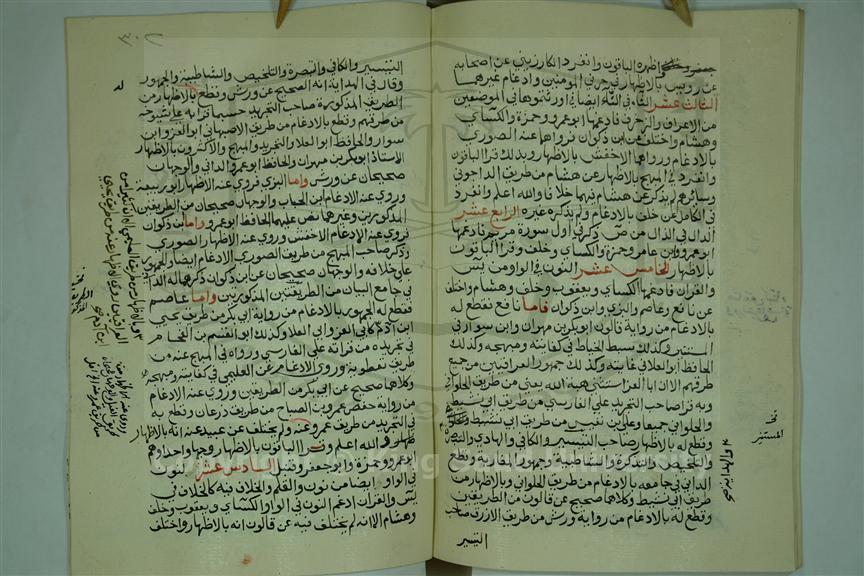 واظهره الباقون وانفرد الكارزيني عن اصحابه
عن رويس بالاظهار في حرفي المومنين وادغام غيرهما
الثالث عشر الثاء في الثاء ايضا في اورثتموها في الموضعين
من الاعراف والزخرف فادغمها ابو عمرو وحمزة والكسائي
وهشام واختلف عن ابن ذكوان فرواها عنه الصوري
بالادغام ورواها الاخفش بالاظهار وبذلك قرا الباقون
وانفرد في المبهج بالاظهار عن هشام من طريق الداجوني
وسائرهم لم يذكر عن هشام فيها خلافا والله اعلم وانفرد
في الكامل عن خلف بالادغام ولم يذكره غيره الرابع عشر
الدال في الذال من ص ذكر في اول سورة مريم فادغمها
ابو عمرو وابن عامر وحمزة والكسائي وخلف وقرا الباقون
بالاظهار الخامس عشر النون في الواو من يس
والقران فادغمها الكسائي ويعقوب وخلف وهشام واختلف
عن نافع وعاصم والبزي وابن ذكوان فاما نافع فقطع له
بالادغام من رواية قالون ابو بكر بن مهران وابن سوار في
المستنير وكذلك سبط الخياط في كفايته ومبهجه وكذلك
الحافظ ابو العلا في غايته وكذلك جمهور العراقيين من جميع
طرقهم الا ان ابا العز استثنى هبة الله يعني من طريق الحلواني
وبه قرا صاحب التجريد على الفارسي من طريق ابي نشيط
والحلواني جميعا وعلى بن نفيس من طريق ابي نشيط
وقطع له بالاظهار صاحب التيسير والكافي والهادي والتبصرة
والتلخيص والتذكرة والشاطبية وجمهور المغاربة وقطع
الداني في جامعه بالادغام من طريق الحلواني وبالاظهار من
طريق ابي نشيط وكلاهما صحيح عن قالون من الطريقين
وقطع له بالادغام من رواية ورش من طريق الازرق صاحب
التيسير
نخ
المستنير
والهداية
التيسير والكافي والتبصرة والتلخيص والشاطبية والجمهور
وقال في الهداية انه الصحيح عن ورش وقطع بالاظهار من
الطريق المذكورة صاحب التجريد حسبما قرا به على شيوخه
من طرقهم وقطع بالادغام من طريق الاصبهاني ابو العز وابن
سوار والحافظ ابو العلا والتجريد والمبهج والاكثرون بالاظهار
الاستاذ ابو بكر بن مهران والحافظ ابو عمرو الداني والوجهان
صحيحان عن ورش واما البزي فروى عنه الاظهار ابو ربيعة
وروى عنه الادغام ابن الحباب والوجهان صحيحان من الطريقين
المذكورين وغيرهما نص عليهما الحافظ ابو عمرو واما ابن ذكوان
فروى عنه الادغام الاخفش وروى عنه الاظهار الصوري
وذكر صاحب المبهج من طريق الصوري الادغام ايضا والجمهور
على خلافه والوجهان صحيحان عن ابن ذكوان ذكرهما له الداني
في جامع البيان من الطريقتين المذكورتين واما عاصم
فقطع له الجمهور بالادغام من رواية ابي بكر من طريق يحيى
بن ادم كابي العز وابي العلا وكذلك ابو القسم بن الفحام
في تجريده من قراته على الفارسي ورواه في المبهج عنه من
طريق نفطويه وروى الادغام عن العليمي في كفايته ومبهجه
وكلاهما صحيح عن ابي بكر من الطريقين وروى عنه الادغام
من رواية حفص عمرو بن الصباح من طريق زرعان وقطع به
في التجريد من طريق عمرو عنه ولم يختلف عن عبيد عنه انه بالاظهار
والله اعلم وقرا الباقون بالاظهار وجها واحدا وهم
ابو عمرو وحمزة وابو جعفر وقنبل السادس عشر النون
في الواو ايضا من نون والقلم والخلاف فيه كالخلاف في
يس والقران ادغم النون في الواو الكسائي ويعقوب وخلف
وهشام الا انه لم يختلف فيه عن قالون انه بالاظهار واختلف
له
نخ